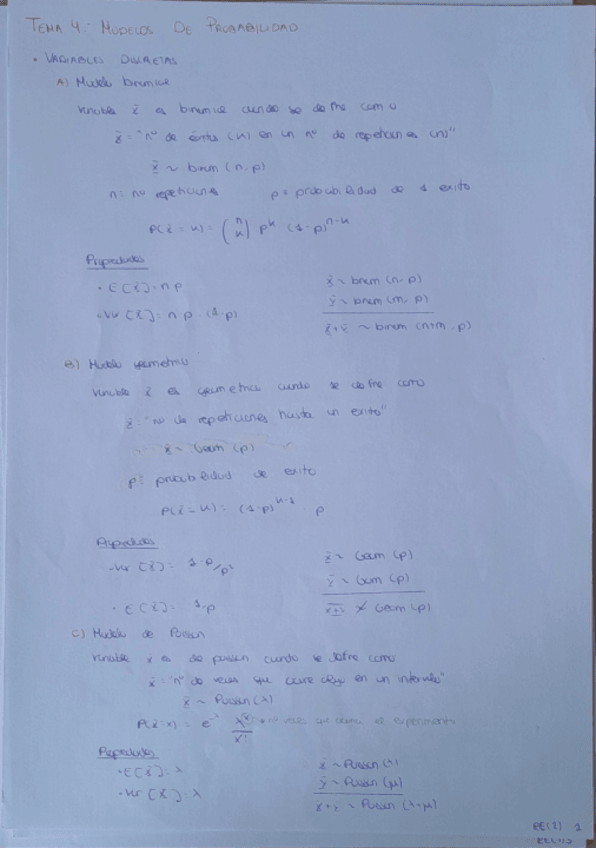 TEMA 4: MODELOS DE PROBABILIDAD
• VARIABLES DISCRETAS
A) Modelo binomial
Variable x̃ es binomial cuando se define como
x̃ = "nº de éxitos (k) en un nº de repeticiones (n)"
x̃ ~ binom (n, p)
n: nº repeticiones p = probabilidad de 1 exito
P(x̃ = k) = (n k) pᵏ (1-p)ⁿ⁻ᵏ
Propiedades
• E[x̃] = n p
• Var [x̃] = n p · (1-p)
x̃ ~ binom (n, p)
ỹ ~ binom (m, p)
x̃+ỹ ~ binom (n+m, p)
B) Modelo geometrico
Variable x̃ es geometrica cuando se define como
x̃ = "nº de repeticiones hasta un exito"
x̃ ~ Geom (p)
p = probabilidad de exito
P(x̃ = k) = (1-p)ᵏ⁻¹ · p
Propiedades
• Var [x̃] = 1-p/p²
• E[x̃] = 1/p
x̃ ~ Geom (p)
ỹ ~ Geom (p)
x+y ≁ Geom (p)
C) Modelo de Poisson
Variable x̃ es de poisson cuando se define como
x̃ = "nº de veces que ocurre algo en un intervalo"
x̃ ~ Poisson (λ)
P(x̃ = x) = e^-λ λ^x / x! nº veces que el experimento
Propiedades
• E[x̃] = λ
• Var [x̃] = λ
x̃ ~ Poisson (λ)
ỹ ~ Poisson (μ)
x+ỹ ~ Poisson (λ+μ)